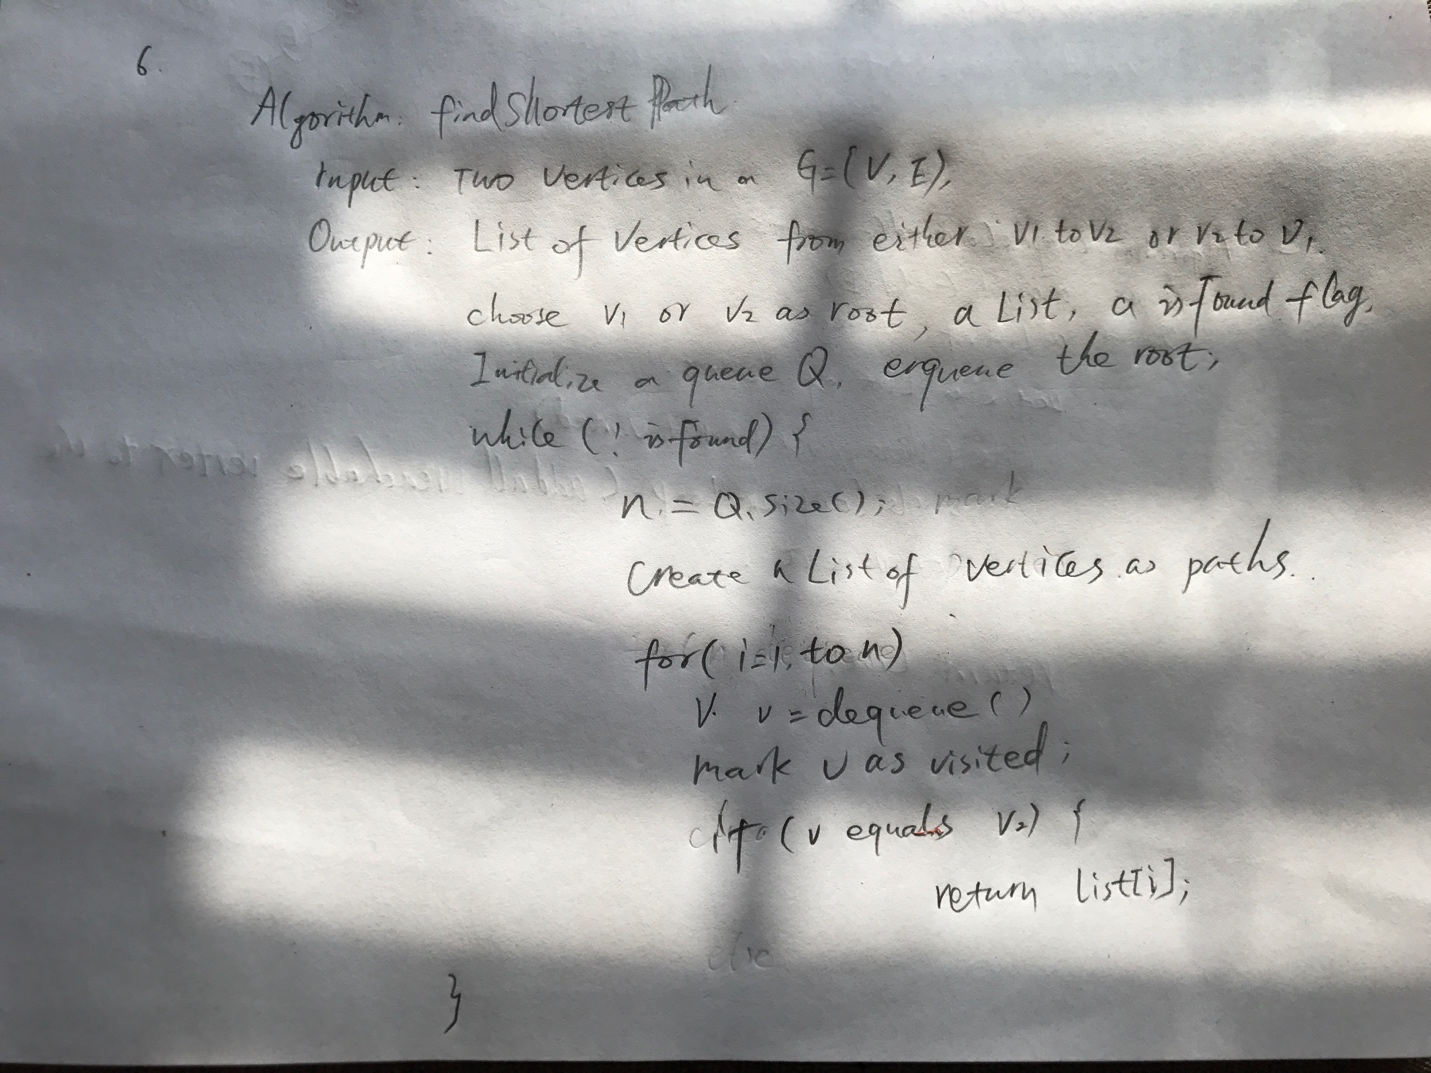 6.
Algorithm: findShortest Path
Input: Two Vertices in a G=(V, E),
Output: List of Vertices from either V1 to V2 or V2 to V1.
choose V1 or V2 as root, a List, a isFound flag.
Initialize a queue Q, enqueue the root;
while (! isFound) {
n = Q.size(); mark
Create a List of vertices as paths.
for( i=1, to n)
V. v = dequeue()
mark v as visited;
if (v equals V2) {
return list[i];
else
}